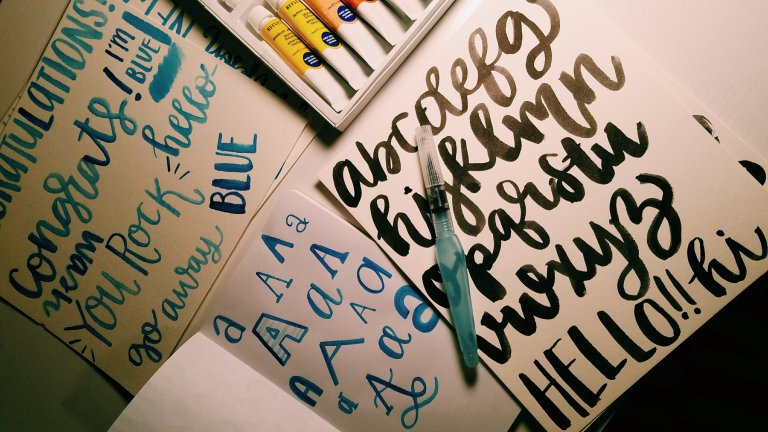 RATULATIONS!!
I'm
BLUE
congrats!
YOU ROCK
hello
BLUE
go away
a
A A
a A a A a
A A a
A a A a
abcdefg
hijklmn
opqrstu
vwxyz
HELLO!!
hi